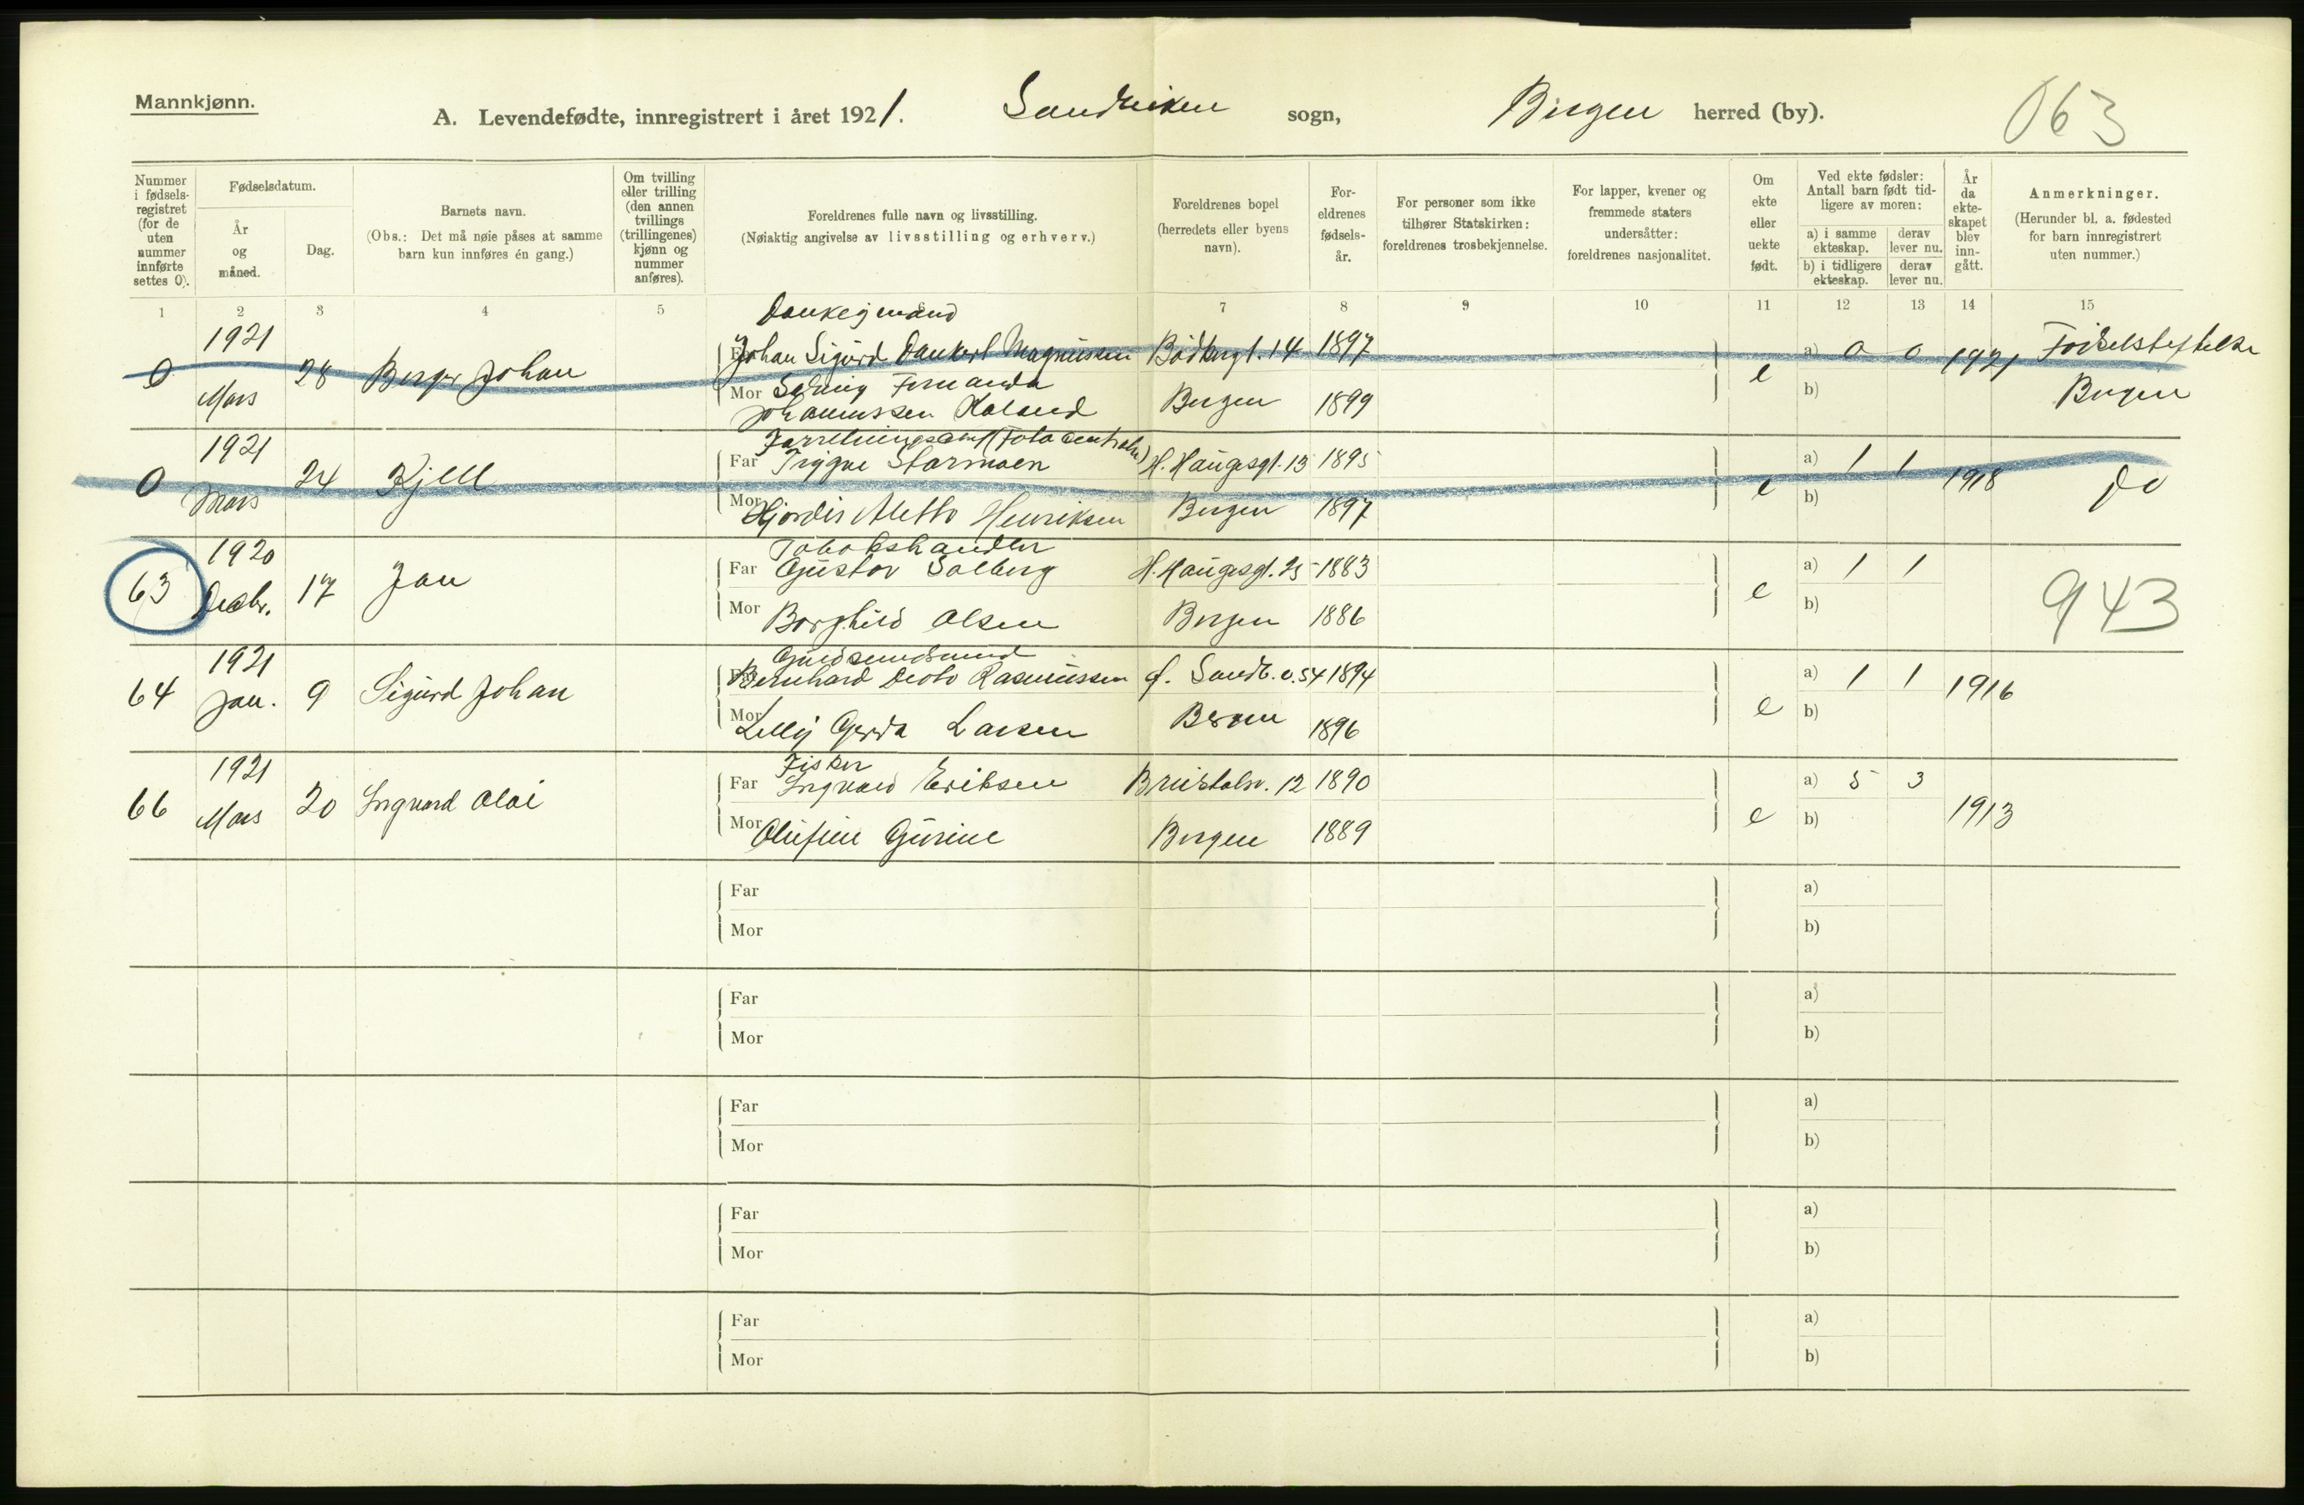 Mannkjønn.
A. Levendefødte, innregistrert i året 1921. Sandviken sogn, Bergen herred (by).
063
Nummer i fødselsregistret (for de uten nummer innførte settes 0).
Fødselsdatum.
År og måned.
Dag.
Barnets navn.
(Obs.: Det må nøie påses at samme barn kun innføres én gang.)
Om tvilling eller trilling (den annen tvillings (trillingenes) kjønn og nummer anføres).
Foreldrenes fulle navn og livsstilling.
(Nøiaktig angivelse av livsstilling og erhverv.)
Foreldrenes bopel (herredets eller byens navn).
Foreldrenes fødselsår.
For personer som ikke tilhører Statskirken: foreldrenes trosbekjennelse.
For lapper, kvener og fremmede staters undersåtter: foreldrenes nasjonalitet.
Om ekte eller uekte født.
Ved ekte fødsler: Antall barn født tidligere av moren:
a) i samme ekteskap. derav lever nu.
b) i tidligere ekteskap. derav lever nu.
År da ekteskapet blev inngått.
Anmerkninger.
(Herunder bl. a. fødested for barn innregistrert uten nummer.)
1 2 3 4 5 6 7 8 9 10 11 12 13 14 15
0 1921 Mars 28 Berger Johan
Johan Sigurd Dankert Magnussen 14 1897
Mor Solveig Fernanda
Johannessen Kaland Bergen 1899
e a) 0 0 1921 b)
Fødselsstiftelse
Bergen
0 1921 Mars 24 Kjell
Far Trygve Stormoen H. Haugesgt. 15 1895
Mor Hjordis Henriksen Bergen 1897
e a) 1 1 1918 b) do
63 1920 Decbr. 17 Jan
Tobakshandler
Far Gustav Solberg H. Haugesgt. 25 1883
Mor Borghild Olsen Bergen 1886
e a) 1 1 b)
943
64 1921 Jan. 9 Sigurd Johan
Bernhard Rasmussen Sandv. 54 1894
Mor Lilly Gerda Larsen Bergen 1896
e a) 1 1 b) 1916
66 1921 Mars 20 Ingvard Olai
Fisker
Far Ingvald Eriksen 12 1890
Mor Olufine Gurine Bergen 1889
e a) 5 3 b) 1913
Far a)
Mor b)
Far a)
Mor b)
Far a)
Mor b)
Far a)
Mor b)
Far a)
Mor b)